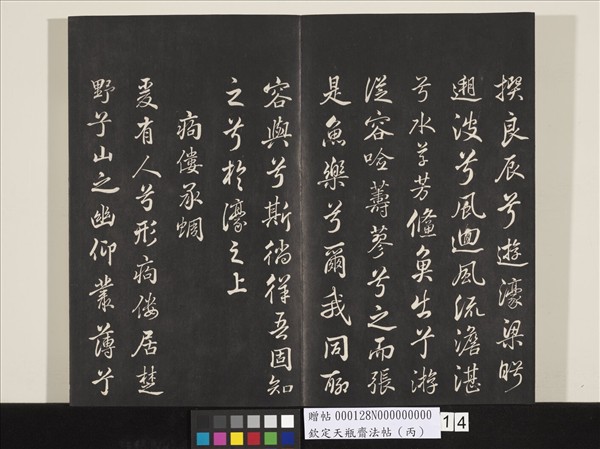 撰良辰兮遊濠梁眄
遡波兮風迴風流澹湛
兮水草芳儵魚出兮游
從容唅薵蓼兮之而張
是魚樂兮爾我同所
容與兮斯徜徉吾固知
之兮於濠之上
痀僂承蜩
爰有人兮形痀僂居楚
野兮山之幽仰叢薄兮
贈帖 000128N000000000
欽定天瓶齋法帖（丙）
14